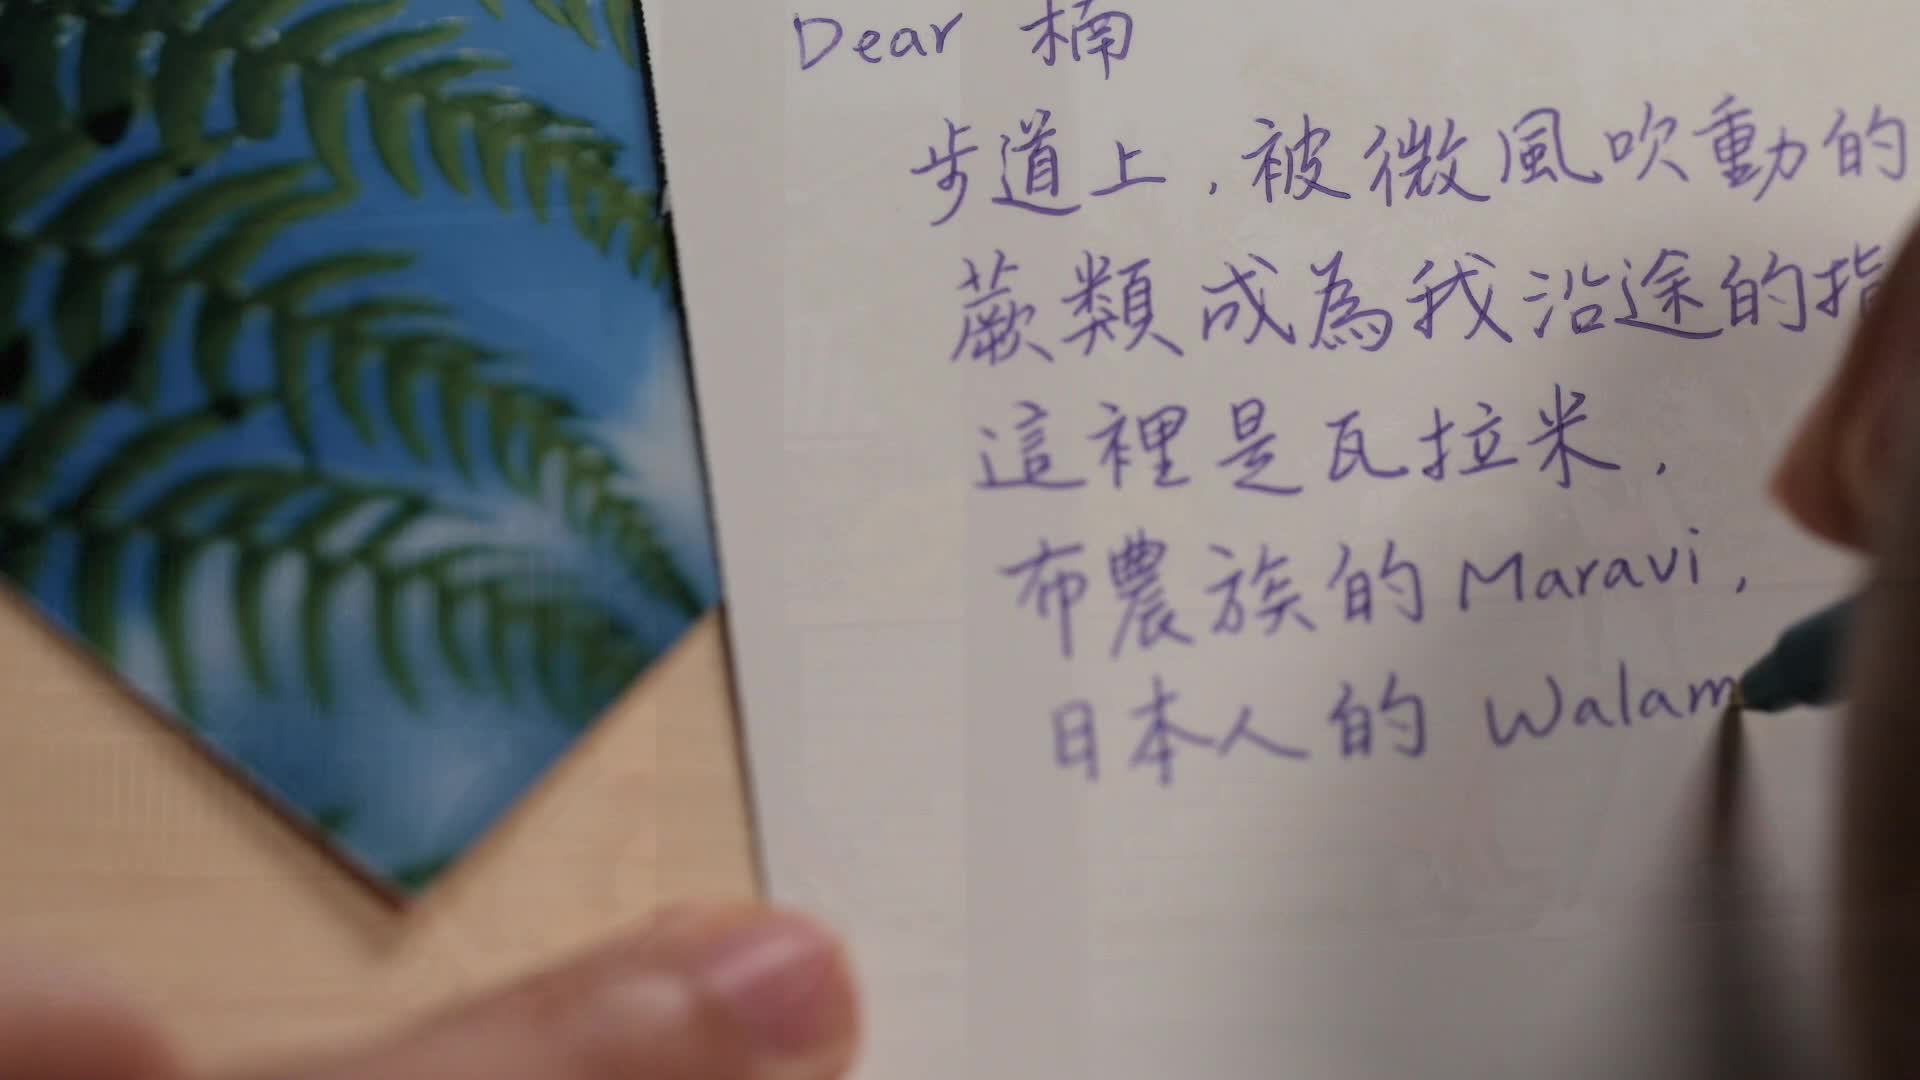 Dear 楠
步道上，被微風吹動的
蕨類成為我沿途的指
這裡是瓦拉米，
布農族的 Maravi，
日本人的 Walam